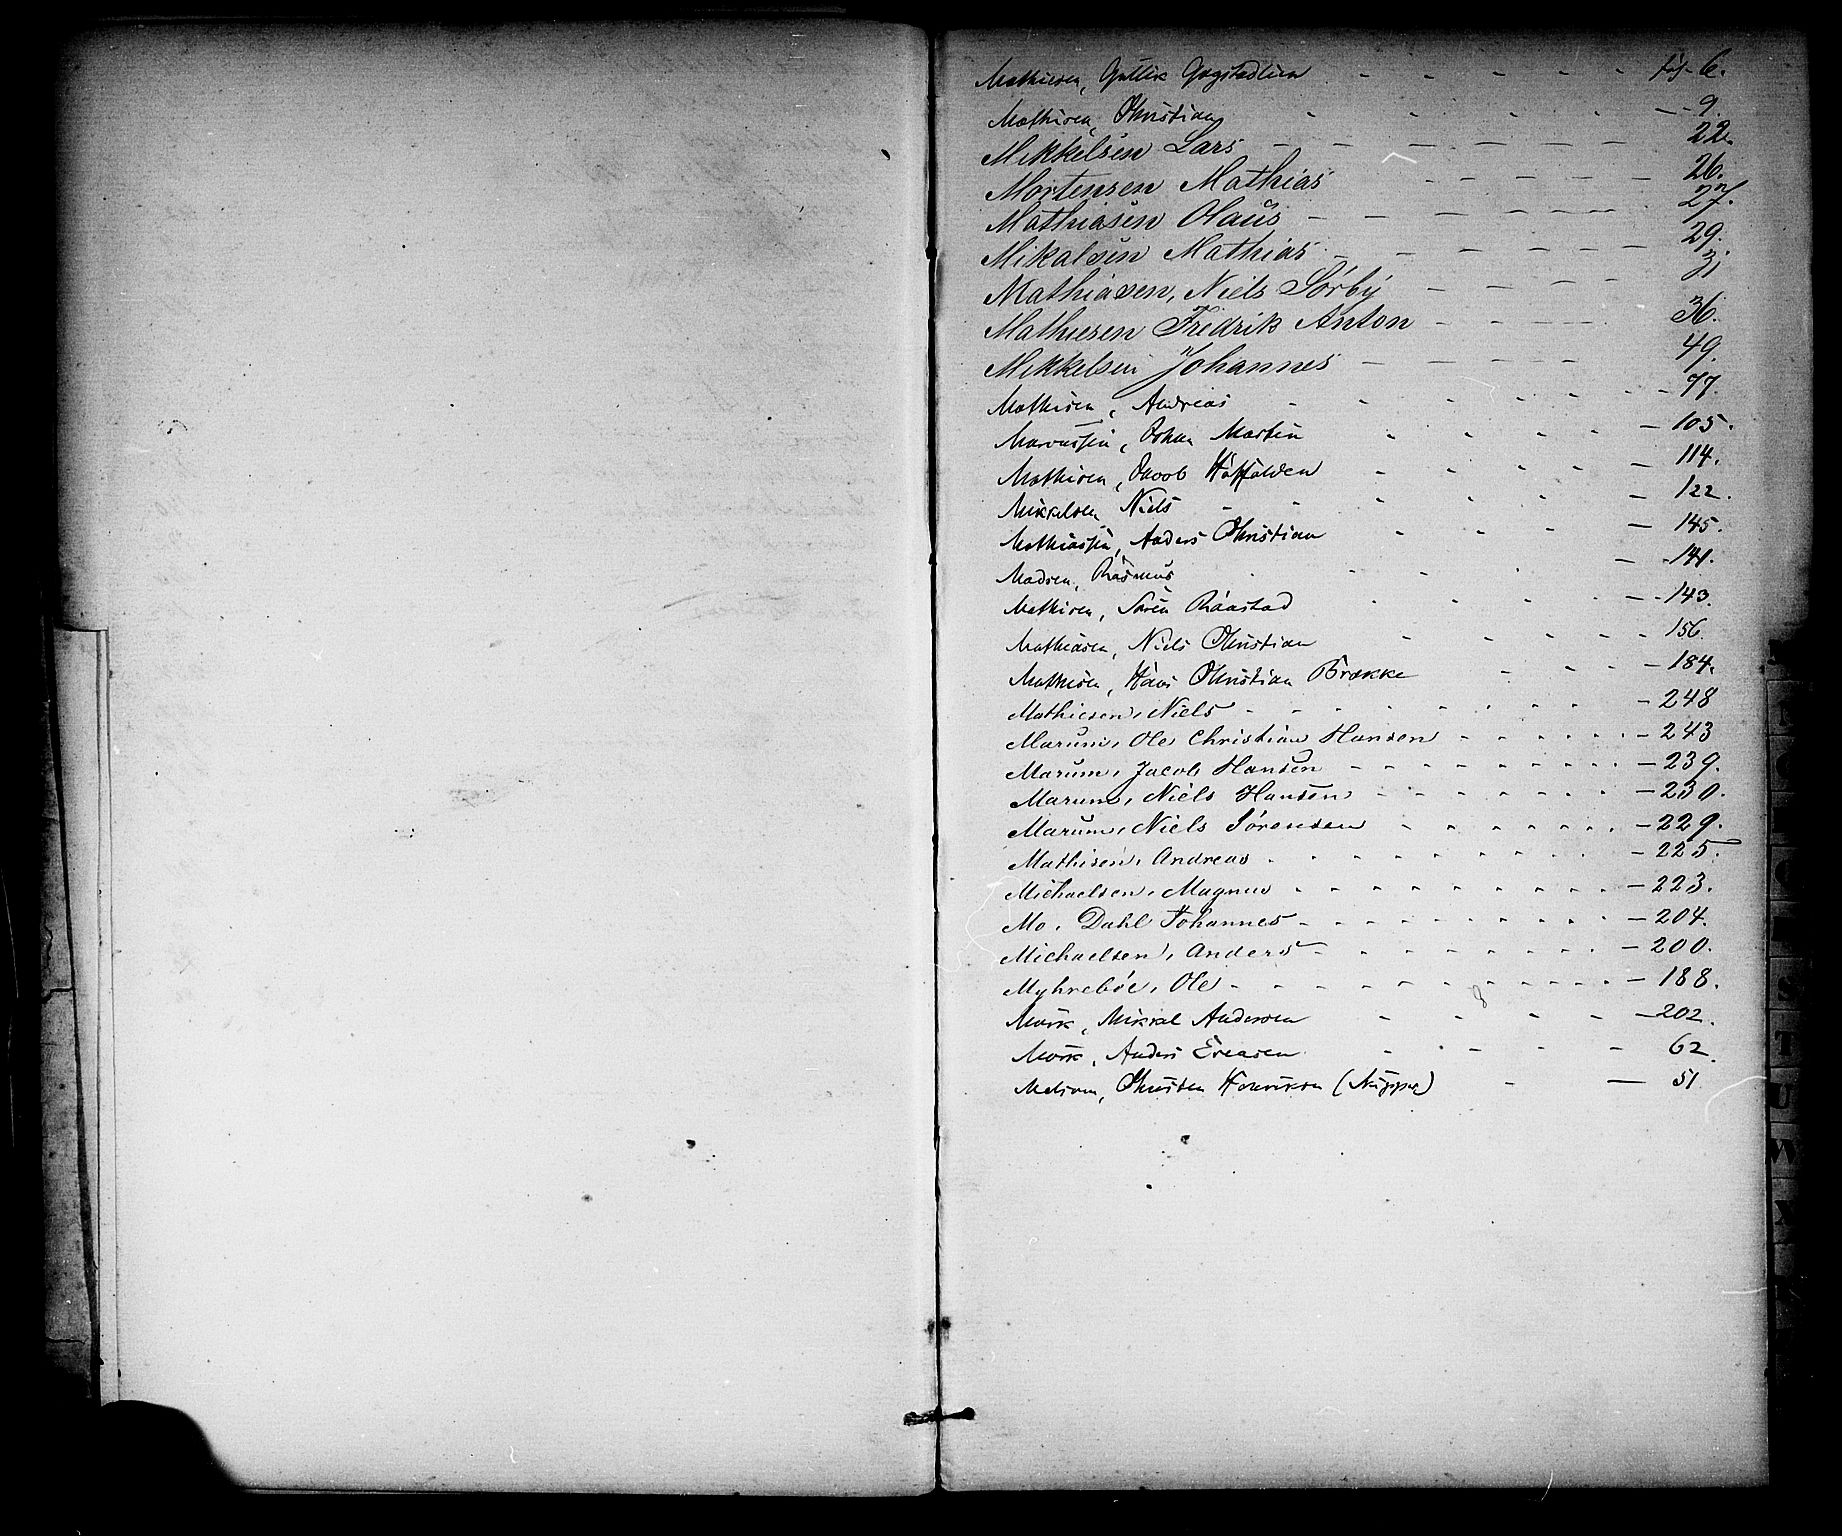 Mathiesen, Gullik Gogstadlien - - - - - fol - 6.
Mathisen, Christian - - - - - - 9.
Mikkelsen Lars - - - - - - 22.
Mortensen Mathias - - - - - 26.
Mathiasen Olaus - - - - - 27.
Mikalsen Mathias - - - - - 29.
Mathiasen, Niels Sörby - - - - 31
Mathiesen Fredrik Anton - - - - 36.
Mikkelsen Johannes - - - - 49.
Mathisen, Andreas - - - - - - 77.
Marcussen, Johan Martin - - - - - 105.
Mathisen, Jacob - - - - 114.
Mikkelsen Niels - - - - - - 122.
Mathiassen, Anders Christian - - - - 145.
Madsen, Rasmus - - - - - 141.
Mathisen, Sören Raastad - - - - - 143.
Mathiasen, Niels Christian - - - - - 156.
Mathisen, Hans Christian Brække - - - - 184.
Mathiesen, Niels - - - - - - - - 248
Marum, Ole Christian Hansen - - - - - - 243
Marum, Jacob Hansen - - - - - - - - 239.
Marum, Niels Hansen - - - - - - - 230.
Marum, Niels Sörensen - - - - - - 229.
Mathisen, Andreas - - - - - - - - 225.
Michaelsen, Magnus - - - - - - - - 223.
Mo, Dahl Johannes - - - - - - - - 204.
Michaelsen, Anders - - - - - - - - 200.
Myhreböe, Ole - - - - - - - - - 188.
Mörk, Mikkal Andersen - - - - - 202.
Mörk, Anders Ereasen - - - - - 62.
Christen Henriksen - - 51